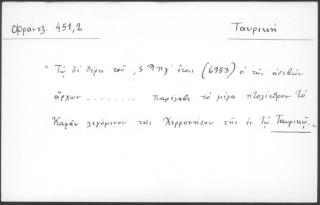 Φραντζ. 451,2 Ταυρική
" Τῷ δὲ θέρει τοῦ ͵ςϠπγ' ἔτους (6983) ὁ τῶν ἀσεβῶν
ἄρχων ........ παρέλαβε τὸ μέγα πτολίεθρον τὸ
Καφᾶν λεγόμενον τῆς Χερρονήσου τῆς ἐν τῇ Ταυρικῇ „